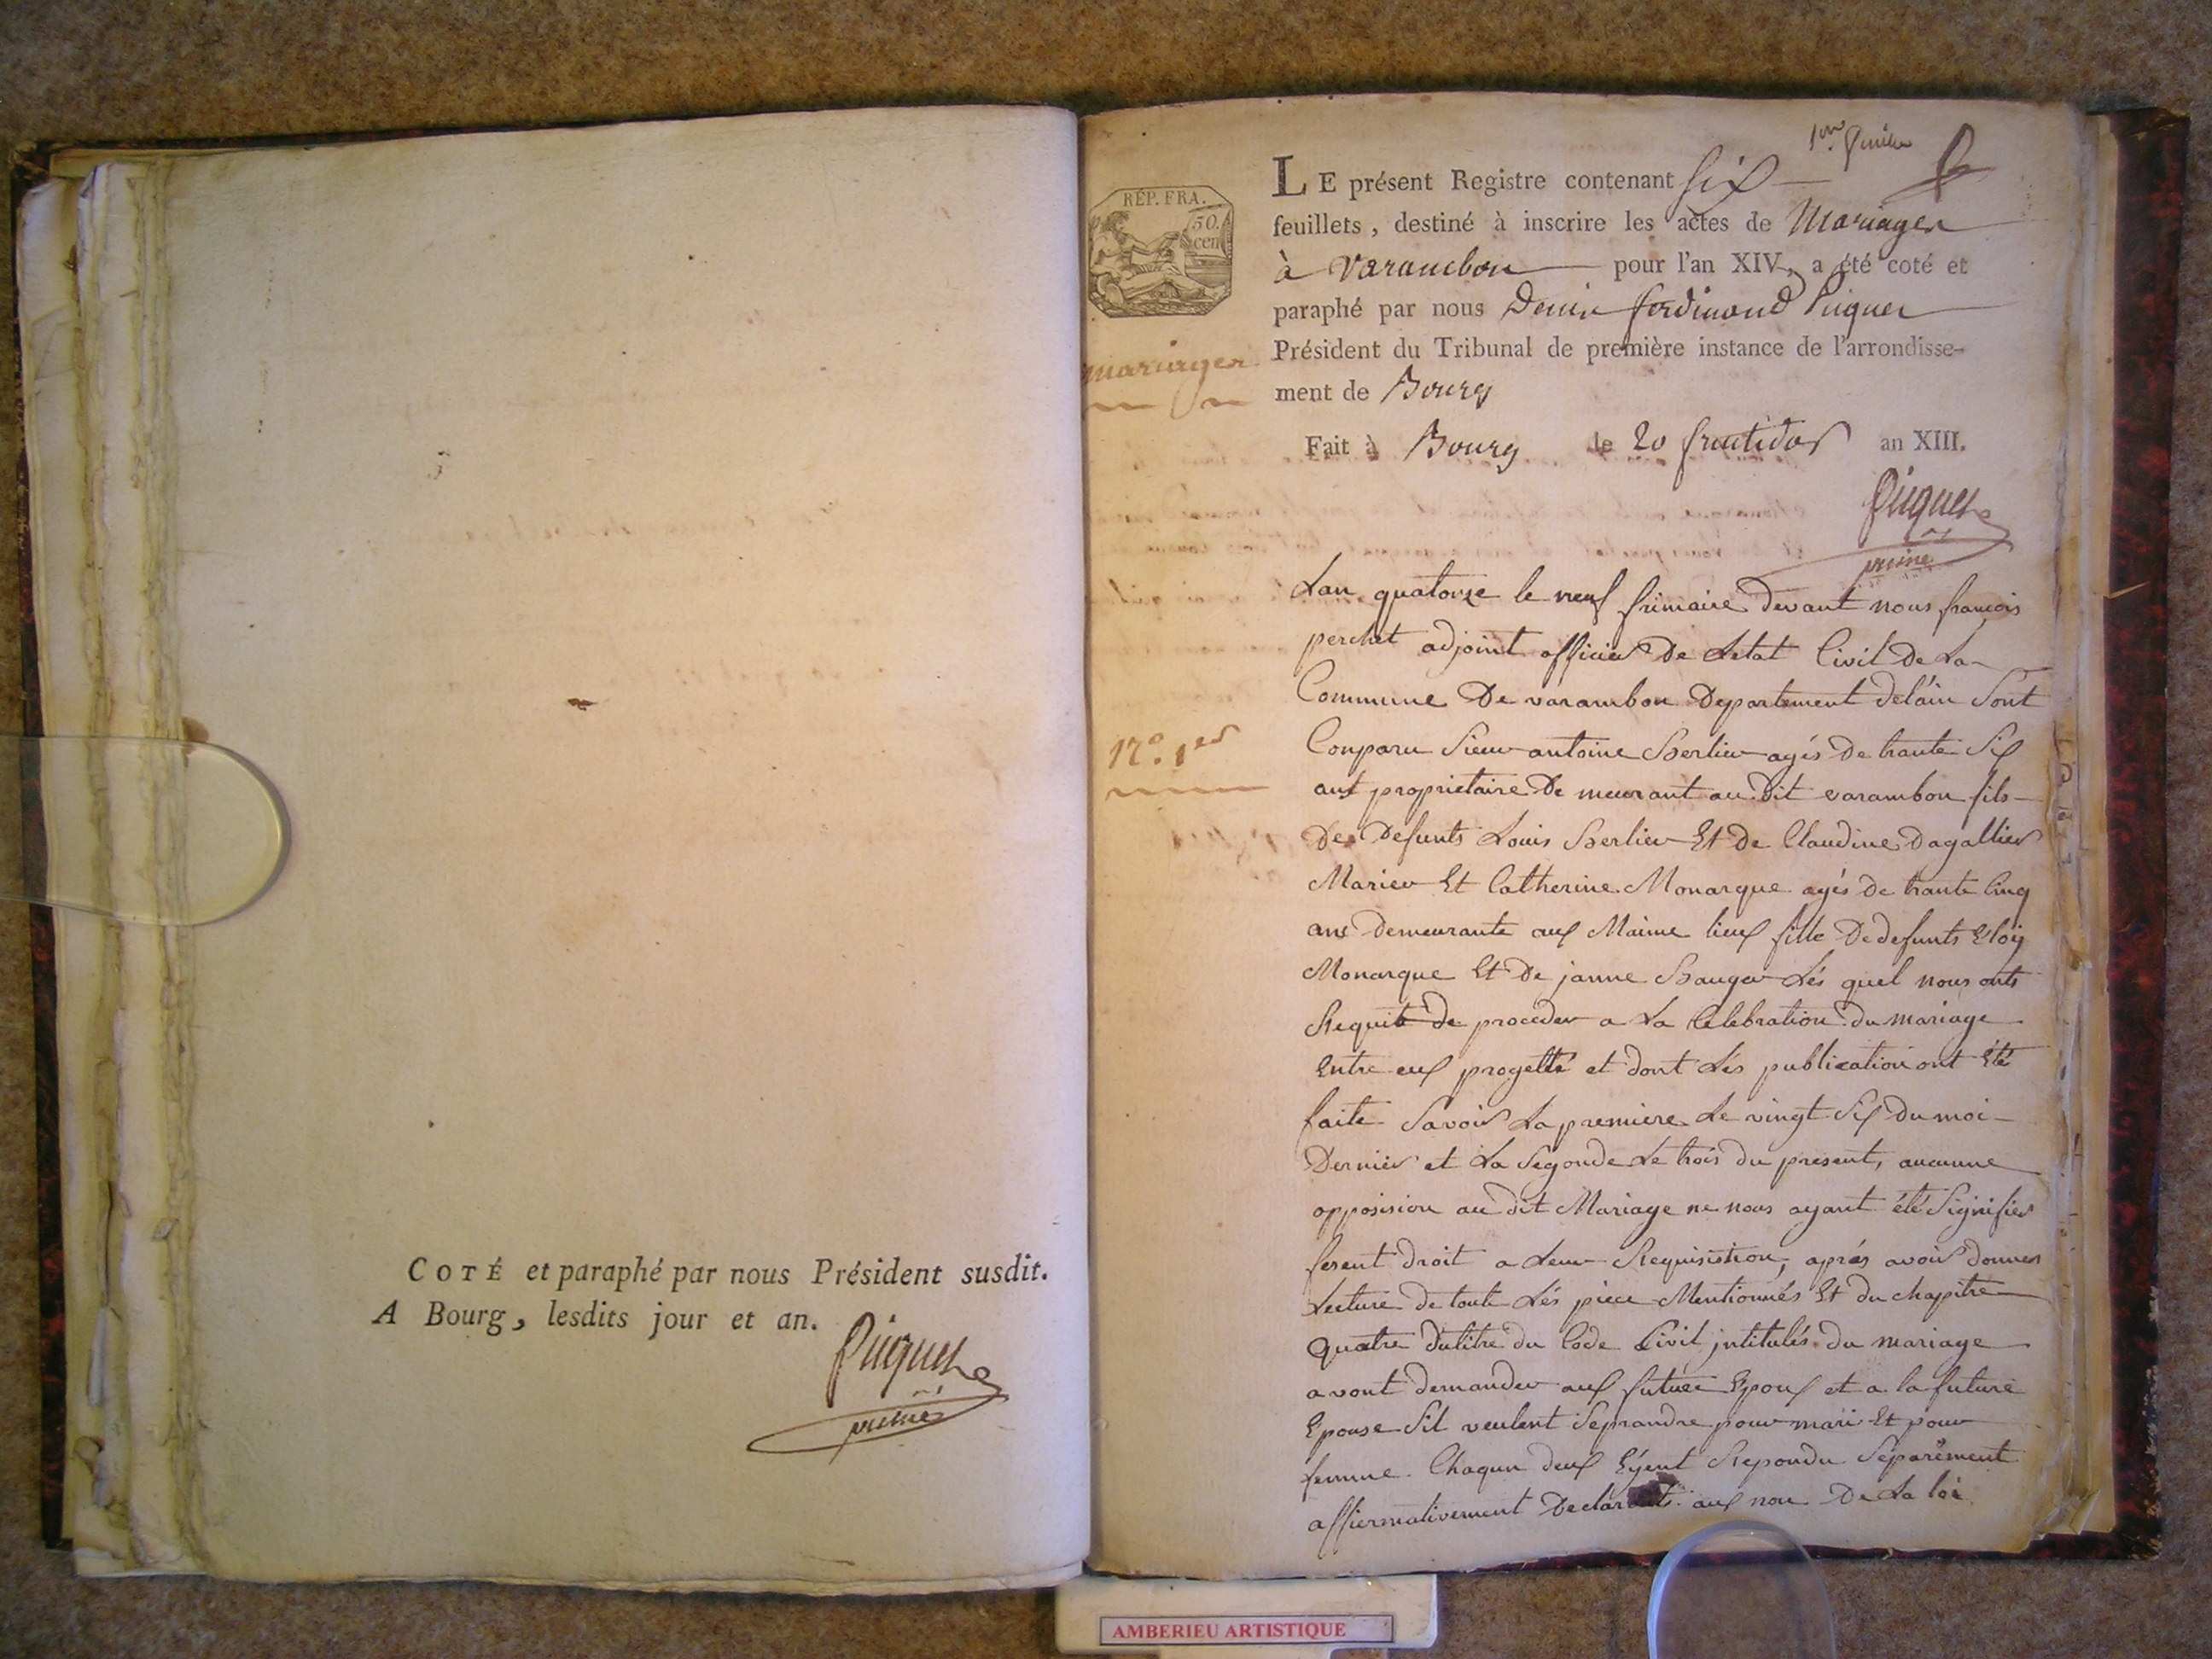 COTÉ et paraphé par nous Président susdit.
A Bourg, lesdits jour et an.
Piquet
1er feuillet
RÉP. FRA.
50.
cen
LE présent Registre contenant six
feuillets, destiné à inscrire les actes de Mariages
à Varambon pour l'an XIV, a été coté et
paraphé par nous Denis ferdinand Piquet
Président du Tribunal de première instance de l'arrondisse-
ment de Bourg
Fait à Bourg le 20 fructidor an XIII.
Piquet
mariages
Lan quatorze le neuf frimaire devant nous francois
perchet adjoint officier De Letat Civil De La
Commune De varambon Departement delain Sont
N° 1er
Conparu Sieur antoine Berlier agés De trante Six
ans proprietaire De meurant au dit varambon fils
Des Defunts Louis Berlier Et De Claudine Dagallier
Marier Et Catherine Monarque agés de trante Cinq
ans Demeurante aux Maime lieux fille De defunts Eloÿ
Monarque Et De janne Bauger Lés quel nous onts
Requit de proceder a La Celebration du mariage
Entre eux progetté et dont Lés publication ont été
faite Savoir La premiere Le vingt Six du moi
Dernier et La Segonde Le trois du present, aucunne
opposision au dit Mariage ne nous ayant été Signifier
fesent droit a Leur Requisistion, aprés avoir donner
Lecture De toute Lés piece Mentionnés Et du chapitre
quatre dutitre du Code Civil jntitulés du mariage
avont demander aux futuer Epoux et a la future
Epouse Sil veulent Seprandre pour mari Et pour
femme. Chaqun deux Eÿent Repondu Séparément
affiermativement Declaront aux non De La loi
AMBERIEU ARTISTIQUE